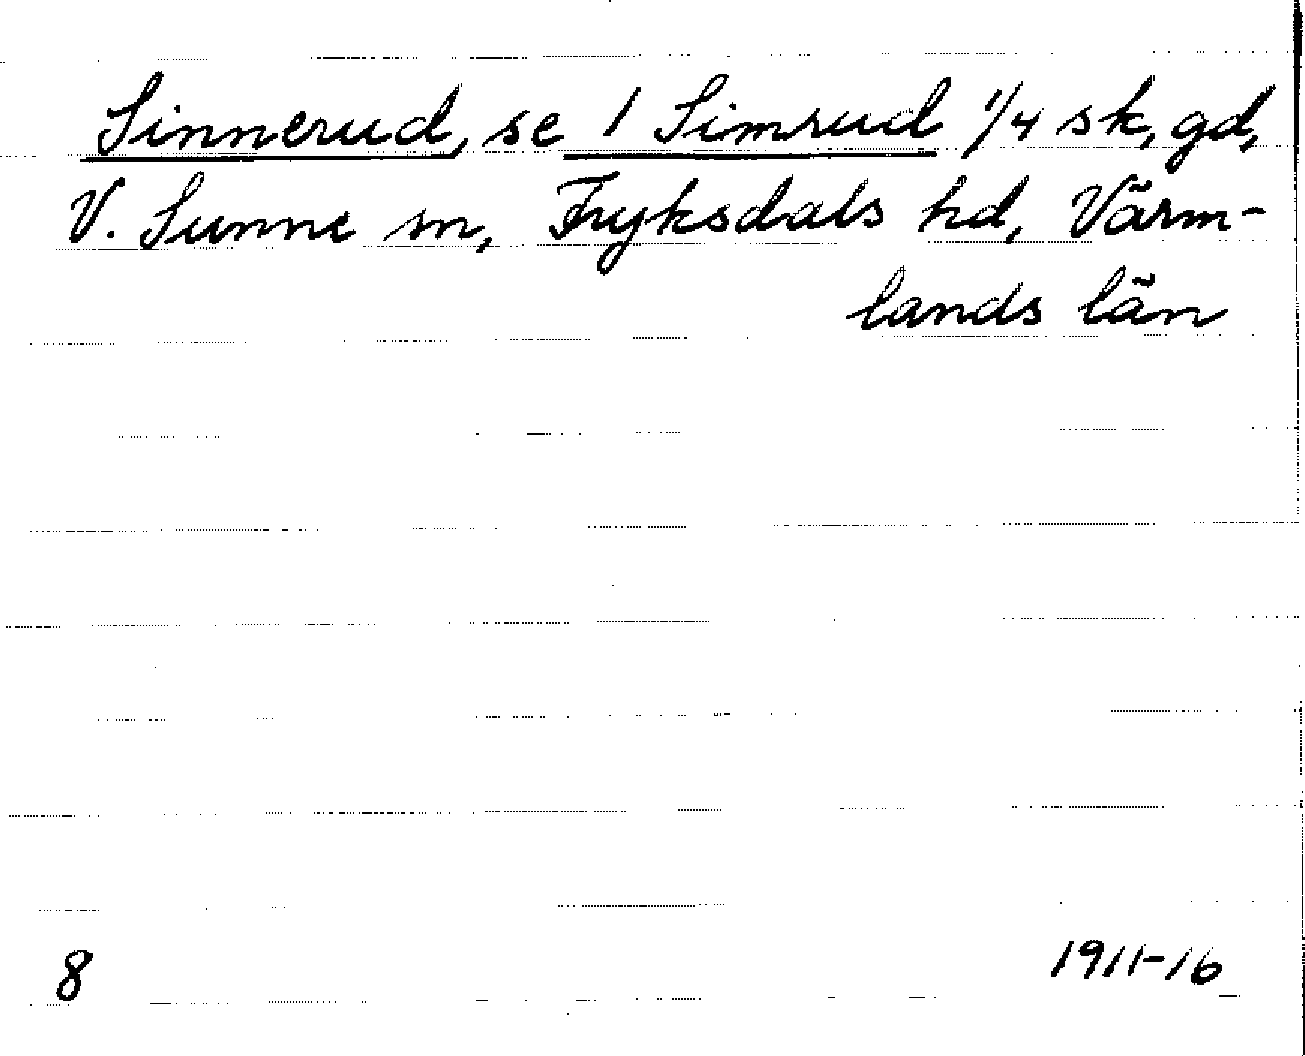 Sinnerud, se 1 Simrud 1/4 sk, gd,
V. Sunne sn, Fryksdals hd, Värm-
lands län
8
1911-16